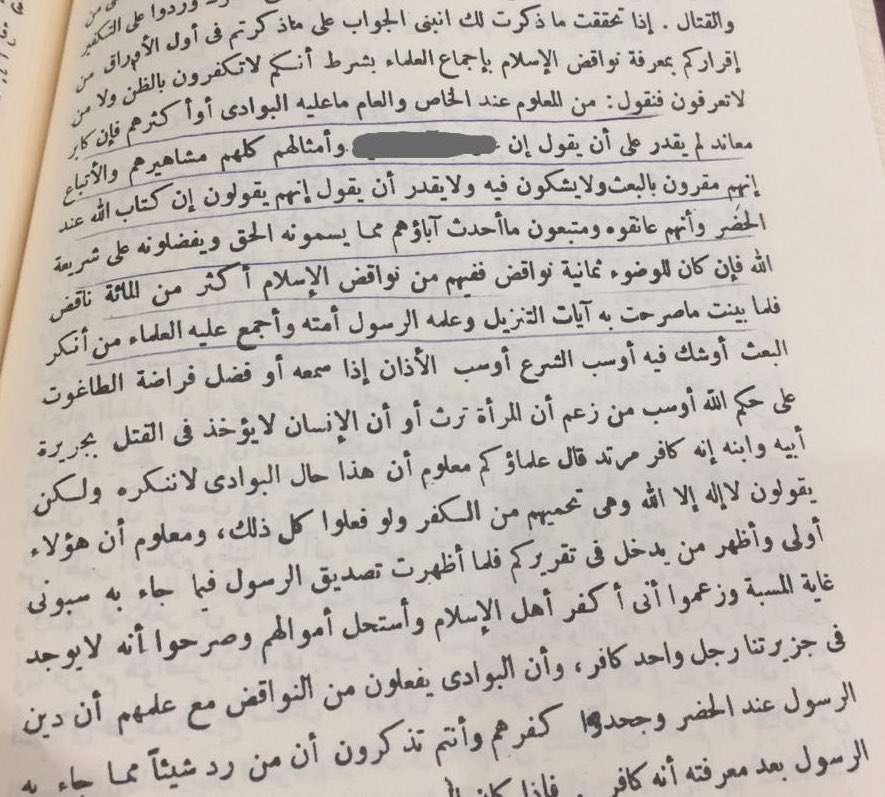 والقتال . إذا تحققت ما ذكرت لك انبنى الجواب على ما ذكرتم فى أول الأوراق من
إقراركم بمعرفة نواقض الإسلام بإجماع العلماء بشرط أنكم لا تكفرون بالظن ولا من
لا تعرفون فنقول : من المعلوم عند الخاص والعام ما عليه البوادى أو أكثرهم فإن كابر
معاند لم يقدر على أن يقول إن وأمثالهم كلهم مشاهيرهم والأتباع
إنهم مقرون بالبعث ولا يشكون فيه ولا يقدر أن يقول إنهم يقولون إن كتاب الله عند
الحضَر وأنهم عانقوه ومتبعون ما أحدث آباؤهم مما يسمونه الحق ويفضلونه على شريعة
الله فإن كان للوضوء ثمانية نواقض ففيهم من نواقض الإسلام أكثر من المائة ناقض
فلما بينت ما صرحت به آيات التنزيل وعلمه الرسول أمته وأجمع عليه العلماء من أنكر
البعث أو شك فيه أو سب الشرع أو سب الأذان إذا سمعه أو فضل فراضة الطاغوت
على حكم الله أو سب من زعم أن المرأة ترث أو أن الإنسان لا يؤخذ فى القتل بجريرة
أبيه وابنه إنه كافر مرتد قال علماؤكم معلوم أن هذا حال البوادى لا ننكره ولكن
يقولون لا إله إلا الله وهى تحميهم من الكفر ولو فعلوا كل ذلك، ومعلوم أن هؤلاء
أولى وأظهر من يدخل فى تقريركم فلما أظهرت تصديق الرسول فيما جاء به سبونى
غاية المسبة وزعموا أنى أكفر أهل الإسلام وأستحل أموالهم وصرحوا أنه لا يوجد
فى جزيرتنا رجل واحد كافر، وأن البوادى يفعلون من النواقض مع علمهم أن دين
الرسول عند الحضر وجحدوا كفرهم وأنتم تذكرون أن من رد شيئاً مما جاء به
الرسول بعد معرفته أنه كافر . فإذا كان